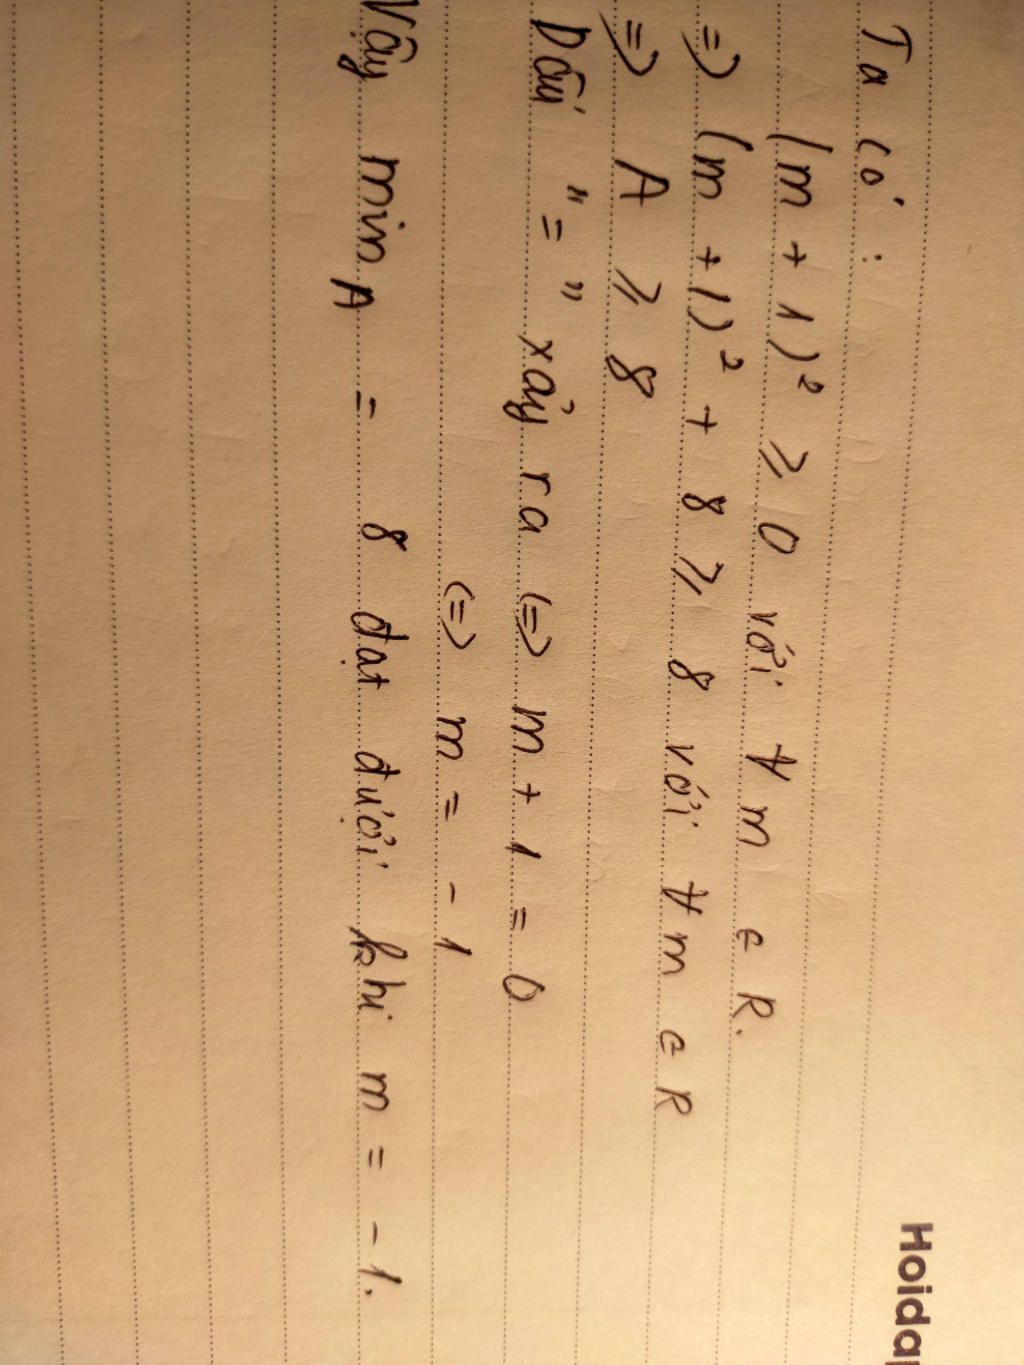 Ta có:
(m + 1)² ⩾ 0 với ∀ m ∈ R.
=> (m + 1)² + 8 ⩾ 8 với ∀ m ∈ R
=> A ⩾ 8
Dấu "=" xảy ra <=> m + 1 = 0
<=> m = -1
Vậy min A = 8 đạt được khi m = -1.
Hoida